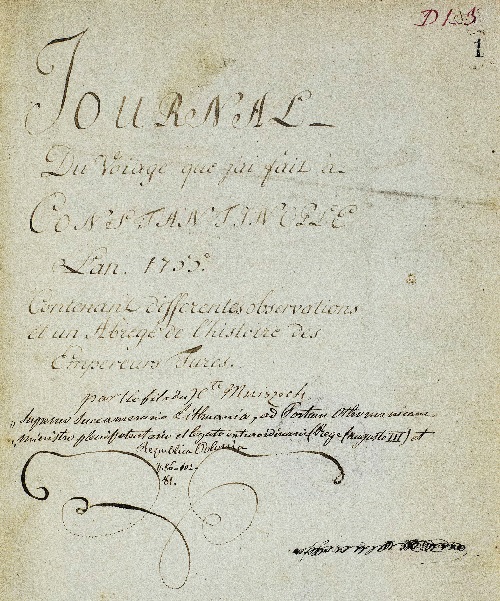 D 1
1
JOURNAL
Du Voiage que j'ai fait à
CONSTANTINOPLE
L'an. 1755.
Contenant differentes observations
et un Abregé de l'histoire des
Empereurs Turcs.
par le fils du Cte Muniech
Supremo Succamerario Lithuaniae, ad Portam Ottomanicam
ministro plenipotentiario et legato extraordinario (Rege Augusto III) et
Republica Polona